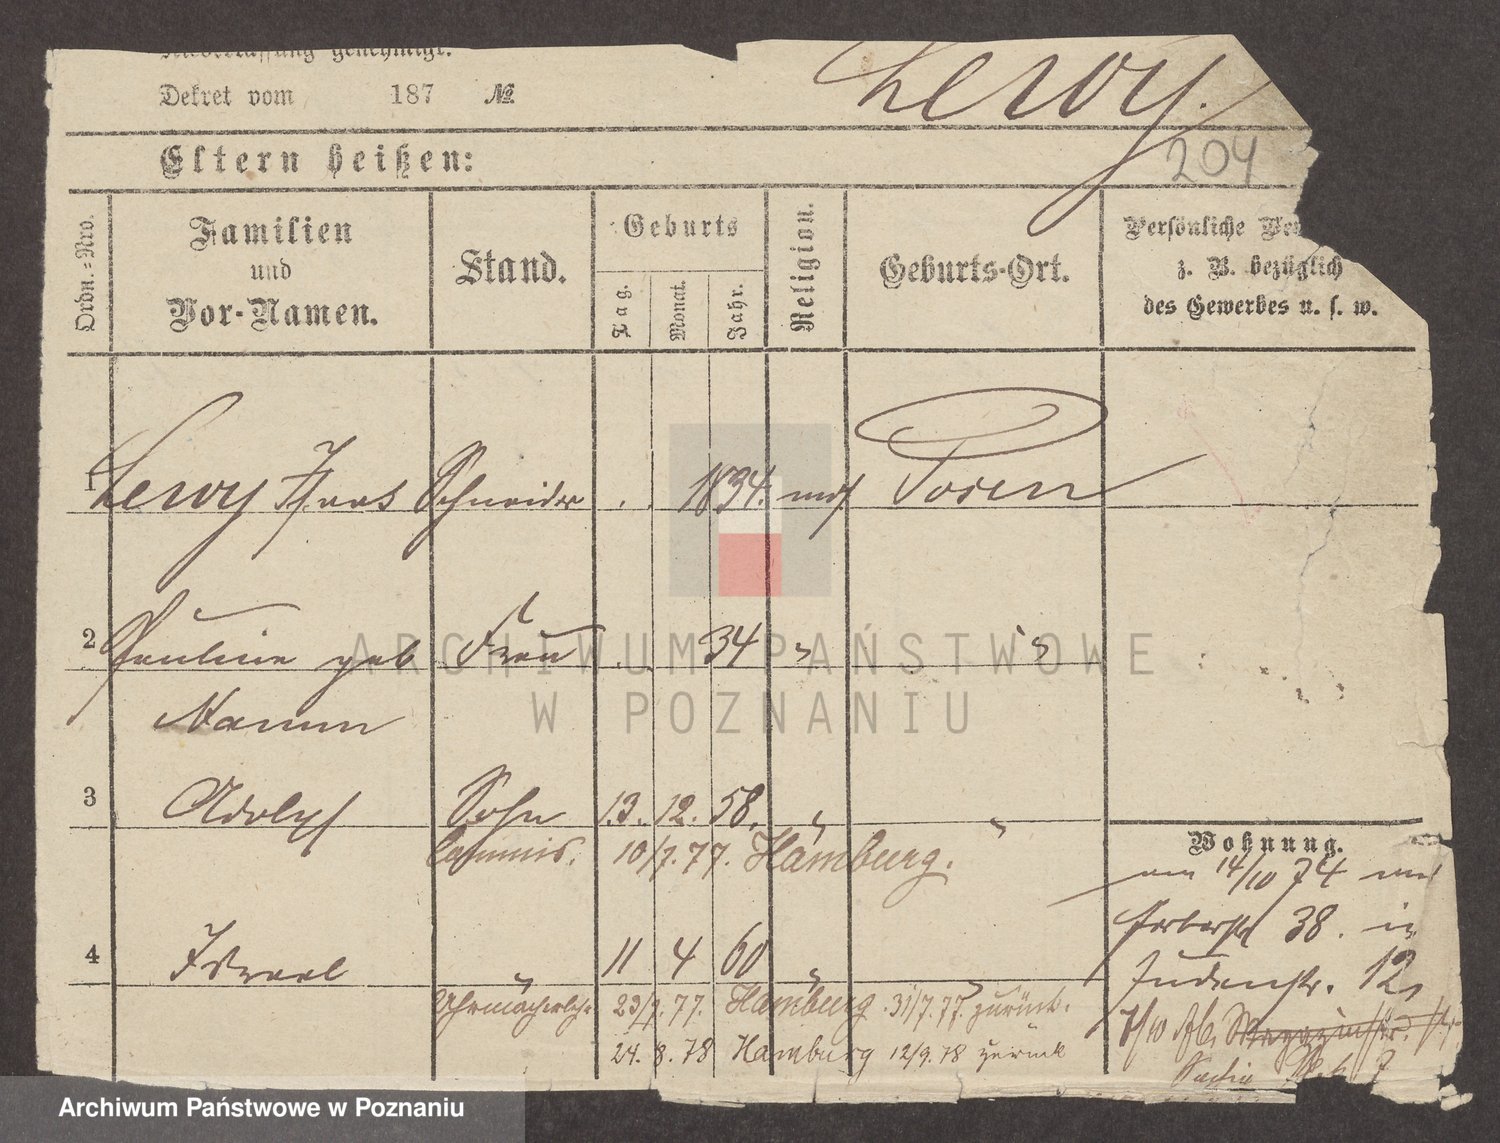 Niederlassung genehmigt.
Dekret vom 187 № Lewy.
Eltern heißen: 204
Ordn.=Nro. Familien und Vor-Namen. Stand. Geburts Tag. Monat. Jahr. Religion. Geburts-Ort. Persönliche
z. B. bezüglich
des Gewerbes u. s. w.
1 Lewy Isaac Schneider 1834. mos. Posen
2 Pauline geb Frau 34 " "
Mamm
3 Adolph Sohn 13. 12. 58. " "
Commis. 10/7. 77. Hamburg.
Wohnung.
am 14/10 74 von
38. in
4 Israel " 11 4 60 " "
Judenstr. 12
Uhrmacherlehr 23/7. 77. Hamburg. 31/7. 77. zurück.
24. 8. 78 Hamburg 12/9. 78 zurück
ARCHIWUM PAŃSTWOWE
W POZNANIU
Archiwum Państwowe w Poznaniu